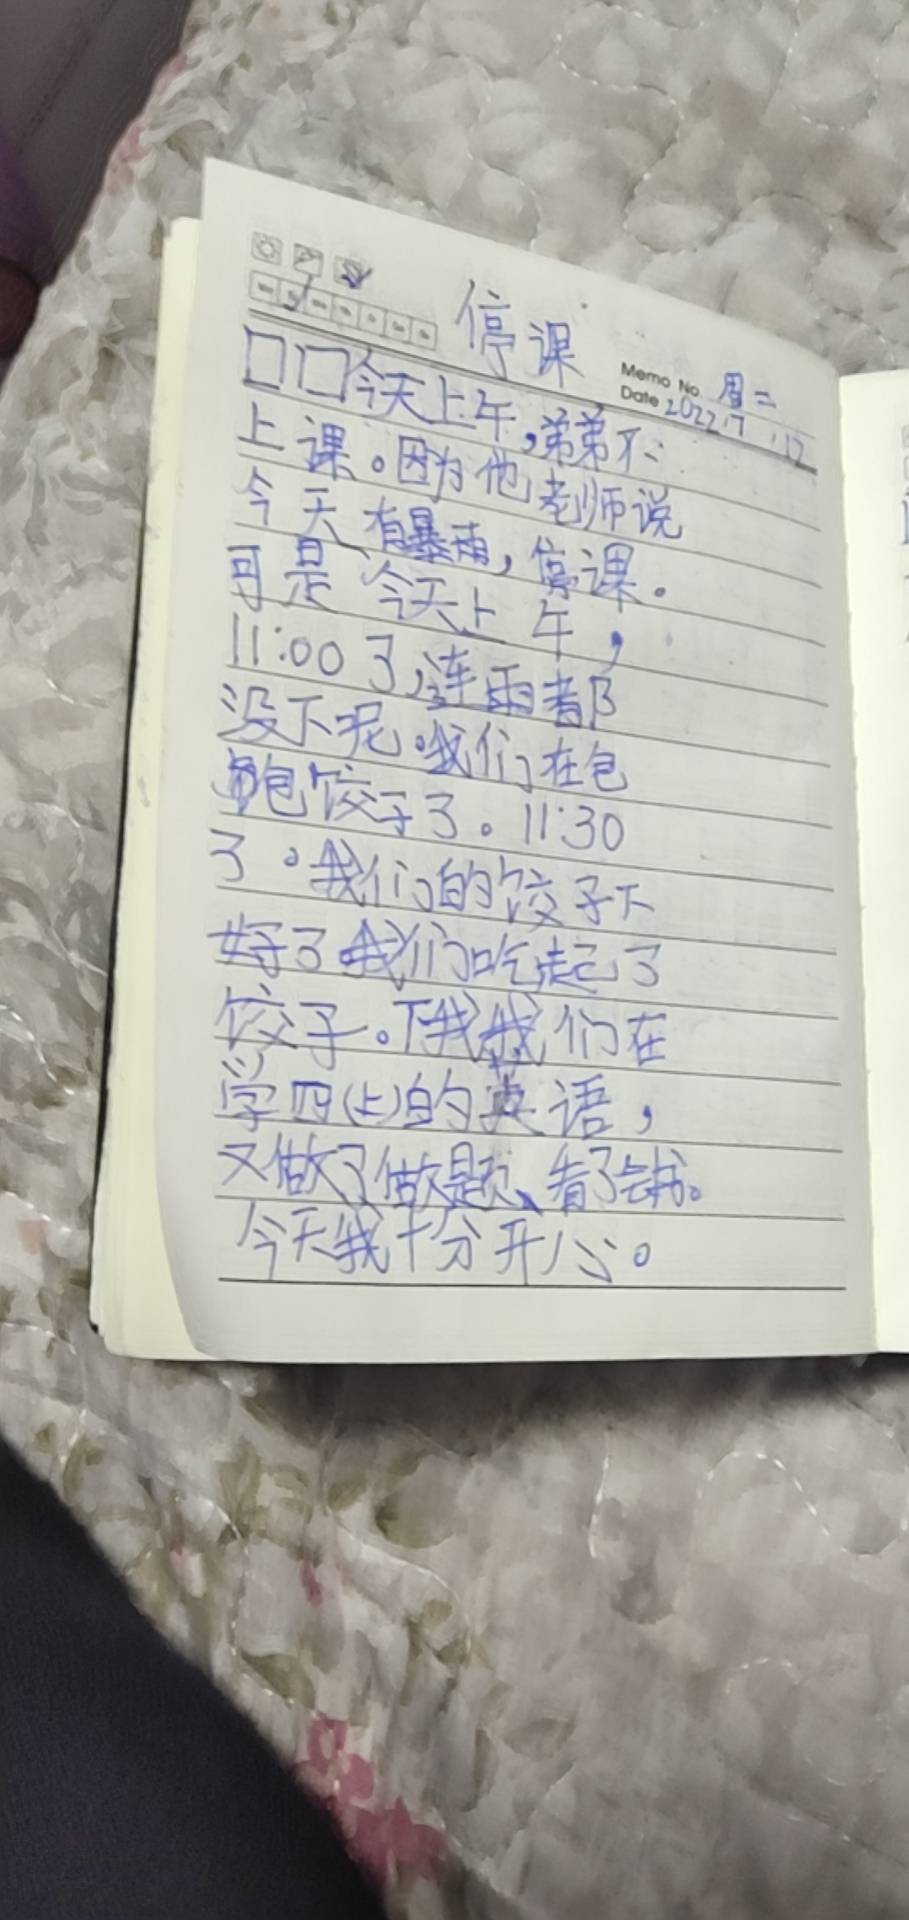 停课
Memo No. 周二
Date 2022.7.12
口口今天上午,弟弟不
上课。因为他老师说
今天有暴雨,停课。
可是今天上午,
11:00了,连雨都
没下呢。我们在包
饺子了。11:30
了。我们的饺子下
好了我们吃起了
饺子。下我我们在
学四(上)的英语,
又做了做题、看了书。
今天我十分开心。